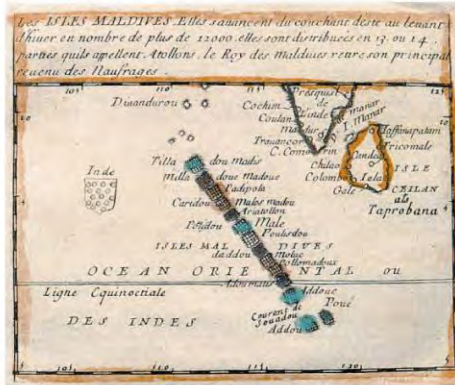 Les ISLES MALDIVES. Elles s'avancent du couchant deste au levant
d'hiver en nombre de plus de 12000. elles sont distribuées en 13. ou 14.
parties quils appellent Atollons. le Roy des maldives retire son principal
revenu des Naufrages.
10
Presquisle
de
Linde
Divandurou
Cochim
Coulan
de manar
P. I. Manar
Madur
Travancor
C. Comorin
Jaffanapatam
Tricomale
Chilao
Candea
Colombo
ISLE
Gale
CEILAN
als
Taprobana
Inde
Tilla dou madis
Milla doue madoue
Padipola
Caridou
Malos madou
Ariatollon
Male
Poulisdou
ISLES MALDIVES
Molue
Collomadoux
OCEAN ORIENTAL ou
Adoumatis
Ligne Equinoctiale
Addoue
Poué
DES INDES
Courent de
Souadou
Addou
105
110
115
120